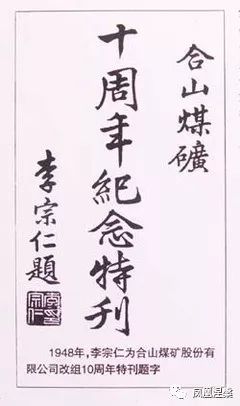 合山煤礦
十周年紀念特刊
李宗仁題
李宗仁印
1948年,李宗仁为合山煤矿股份有
限公司改组10周年特刊题字
凤凰涅槃